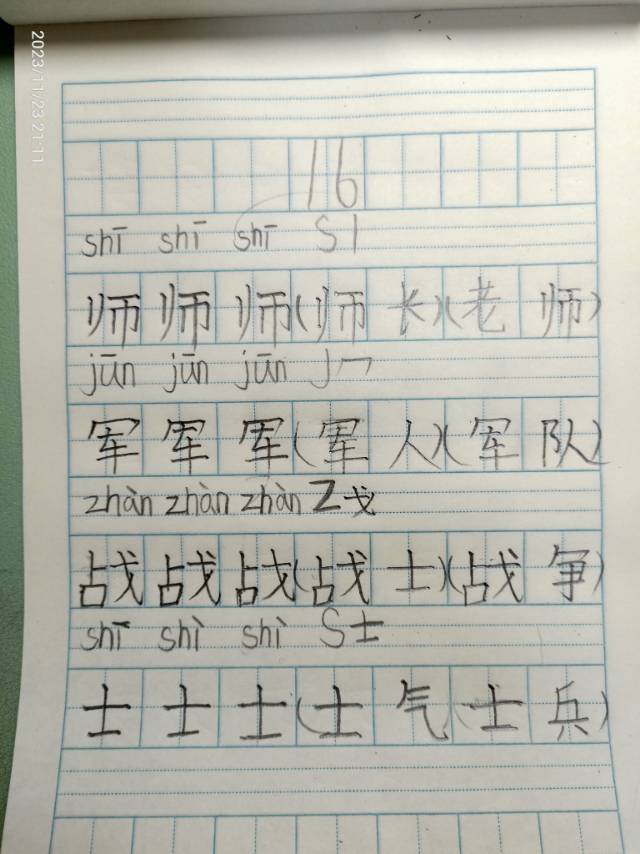 2023/11/23 21:11
16
shī shī shī S丨
师 师 师(师 长)(老 师)
jūn jūn jūn J冖
军 军 军(军 人)(军 队)
zhàn zhàn zhàn Z戈
战 战 战(战 士)(战 争)
shī shì shì S士
士 士 士(士 气)(士 兵)